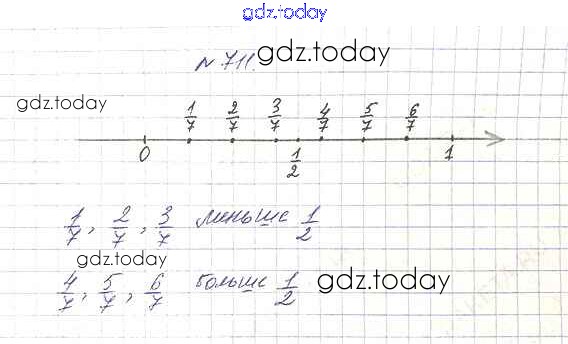 gdz.today
№ 711. gdz.today
gdz.today
1/7 2/7 3/7 4/7 5/7 6/7
0 1/2 1
1/7, 2/7, 3/7 меньше 1/2
gdz.today
4/7, 5/7, 6/7 больше 1/2 gdz.today